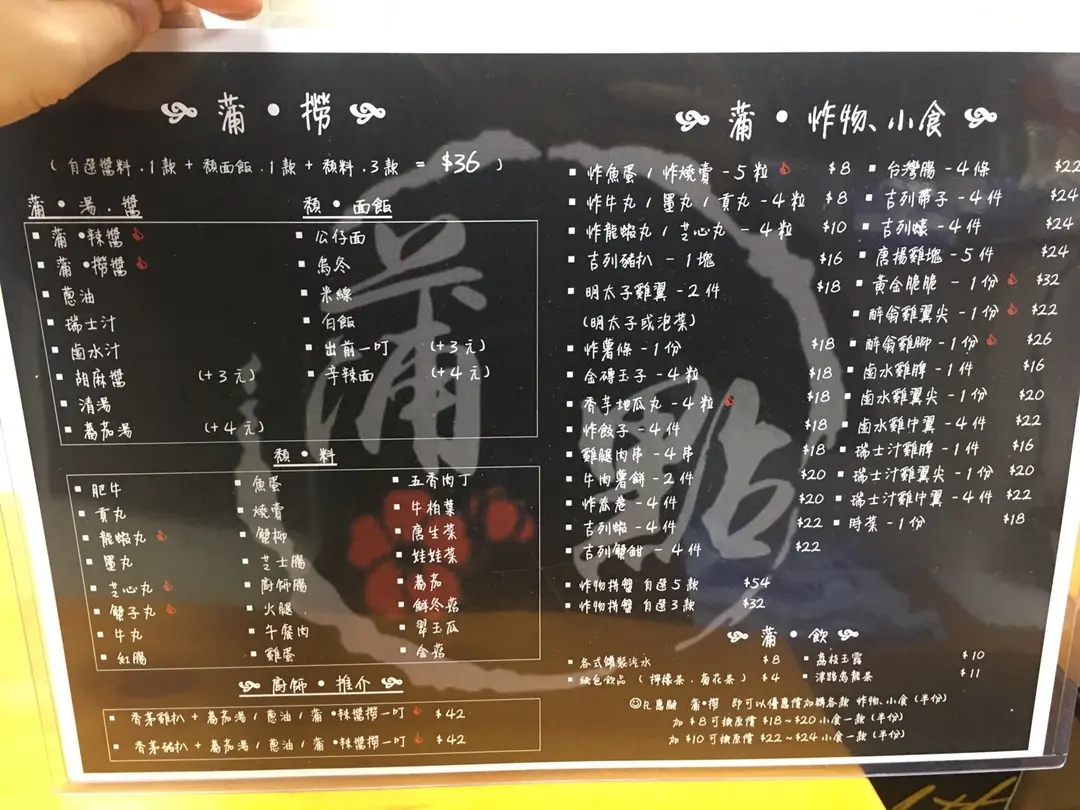 蒲•撈
(自選醬料.1款+類面飯.1款+類料.3款 = $36)
蒲•湯.醬
蒲•辣醬
蒲•撈醬
蔥油
瑞士汁
鹵水汁
胡麻醬 (+3元)
清湯
蕃茄湯 (+4元)
類•面飯
公仔面
烏冬
米線
白飯
出前一叮 (+3元)
辛辣面 (+4元)
類•料
肥牛
貢丸
龍蝦丸
墨丸
芝心丸
蟹子丸
牛丸
紅腸
魚蛋
燒賣
蟹柳
芝士腸
廚師腸
火腿
午餐肉
雞蛋
五香肉丁
牛柏葉
唐生菜
娃娃菜
蕃茄
鮮冬菇
翠玉瓜
金菇
廚師•推介
香茅雞扒+蕃茄湯/蔥油/蒲•辣醬撈一叮 $42
香茅豬扒+蕃茄湯/蔥油/蒲•辣醬撈一叮 $42
蒲•炸物、小食
炸魚蛋/炸燒賣-5粒 $8
炸牛丸/墨丸/貢丸-4粒 $8
炸龍蝦丸/芝心丸-4粒 $10
吉列豬扒-1塊 $16
明太子雞翼-2件 $18
(明太子或泡菜)
炸薯條-1份 $18
金磚玉子-4粒 $18
香芋地瓜丸-4粒 $18
炸餃子-4件 $18
雞腿肉串-4串 $18
牛肉薯餅-2件 $20
炸春卷-4件 $20
吉列蝦-4件 $22
吉列蟹鉗-4件 $22
炸物拼盤 自選5款 $54
炸物拼盤 自選3款 $32
台灣腸-4條 $22
吉列帶子-4件 $24
吉列蠔-4件 $24
唐揚雞塊-5件 $24
黃金脆脆-1份 $32
醉翁雞翼尖-1份 $22
醉翁雞腳-1份 $26
鹵水雞髀-1件 $16
鹵水雞翼尖-1份 $20
鹵水雞中翼-4件 $22
瑞士汁雞髀-1件 $16
瑞士汁雞翼尖-1份 $20
瑞士汁雞中翼-4件 $22
時菜-1份 $18
蒲•飲
各式罐裝汽水 $8
紙包飲品(檸檬茶.菊花茶) $4
荔枝玉露 $10
津路烏龍茶 $11
凡惠顧 蒲•撈 即可以優惠價加購各款 炸物、小食(半份)
加$8可換原價$18~$20小食一款(半份)
加$10可換原價$22~$24小食一款(半份)
蒲點